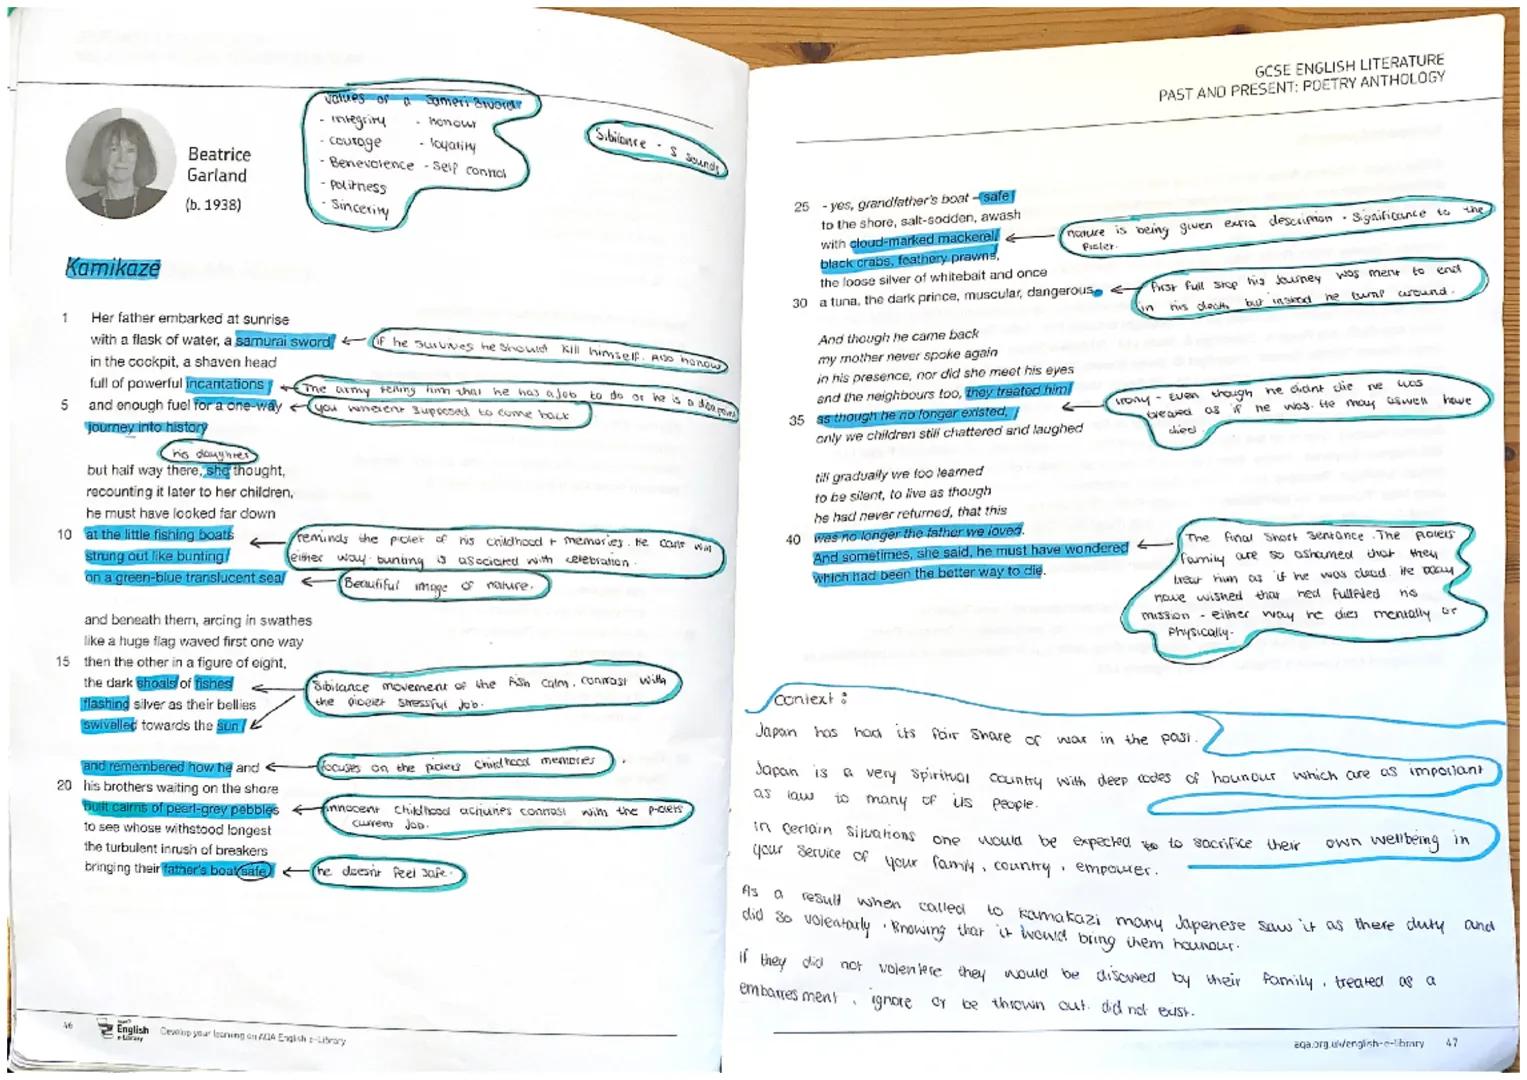 values of a Sameri Sword
- integrity - honour
- courage - loyality
- Benevolence - self control
- politness
- sincerity
Sibilance - s sounds
Beatrice
Garland
(b. 1938)
Kamikaze
1 Her father embarked at sunrise
with a flask of water, a samurai sword
if he survives he should kill himself. Also honour
in the cockpit, a shaven head
full of powerful incantations
The army telling him that he has a job to do or he is a
5 and enough fuel for a one-way
you wherent supposed to come back
journey into history
his daughter
but half way there, she thought,
recounting it later to her children,
he must have looked far down
10 at the little fishing boats
strung out like bunting
on a green-blue translucent sea
reminds the pielet of his childhood + memories. He cant win
either way. bunting is asociated with celebration.
Beautiful image of nature.
and beneath them, arcing in swathes
like a huge flag waved first one way
15 then the other in a figure of eight,
the dark shoals of fishes
flashing silver as their bellies
swivelled towards the sun
Sibilance movement of the fish calm. contrast with
the stressful job.
and remembered how he and
focuses on the pielets childhood memories
20 his brothers waiting on the shore
built cairns of pearl-grey pebbles
innocent childhood activities contrast with the pielets
current job.
to see whose withstood longest
the turbulent inrush of breakers
bringing their father's boat safe
he doesnt feel safe.
46
English
e-Library
Develop your learning on AQA English e-Library
GCSE ENGLISH LITERATURE
PAST AND PRESENT: POETRY ANTHOLOGY
25 - yes, grandfather's boat – safe
to the shore, salt-sodden, awash
with cloud-marked mackerel,
black crabs, feathery prawns,
nature is being given extra description. Significance to the
pielet.
the loose silver of whitebait and once
30 a tuna, the dark prince, muscular, dangerous.
first full stop his journey was ment to end
in his death but instead he turns around.
And though he came back
my mother never spoke again
in his presence, nor did she meet his eyes
and the neighbours too, they treated him
35 as though he no longer existed,
only we children still chattered and laughed
irony - Even though he didnt die he was
treated as if he was. He may aswell have
died.
till gradually we too learned
to be silent, to live as though
he had never returned, that this
40 was no longer the father we loved.
And sometimes, she said, he must have wondered
which had been the better way to die.
The final short sentance. The pielets
family are so ashamed that they
treat him as if he was dead. He may
have wished that hed fullfiled his
mission - either way he dies mentally or
physically.
Context:
Japan has had its fair share of war in the past.
Japan is a very spiritual country with deep codes of hounour which are as important
as law to many of its people.
in certain situations one would be expected to to sacrifice their own wellbeing in
your service of your family, country, empower.
As a result when called to kamakazi many Japenese saw it as there duty and
did so volentarly. Knowing that it would bring them hounour.
if they did not volentere they would be disowed by their family, treated as a
embarresment, ignore or be thrown out. did not exist.
aqa.org.uk/english-e-library 47